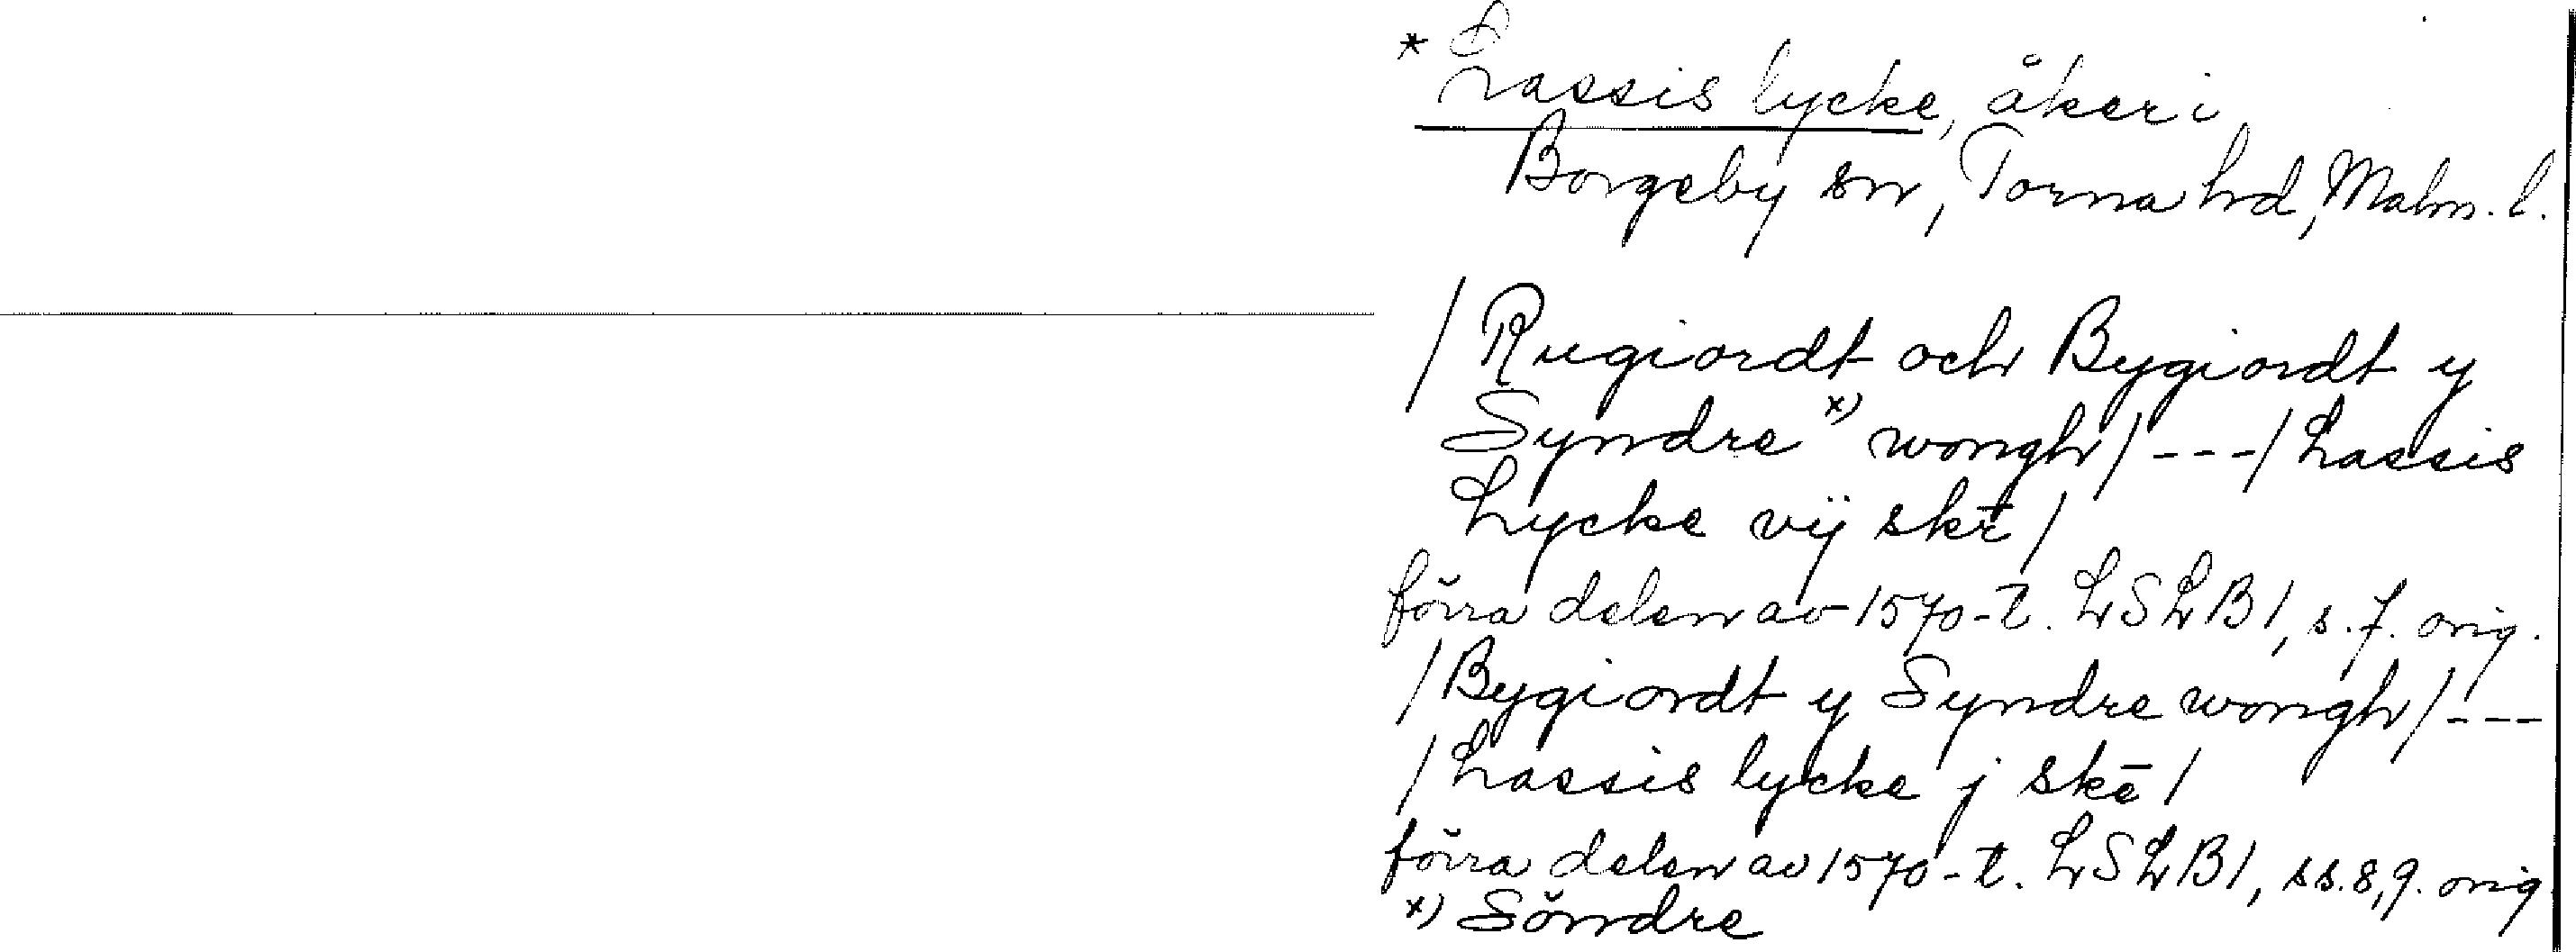 * Lassis lycke, åker i
Borgeby sn, Torna hd, Malm. l.
/Rugiordt och Bygiordt y
Syndre x) wongh/---/Lassis
Lycke vij skr̄/
förra delen av 1570-t. LSLB1, s. 7. orig.
/Bygiordt y Syndre wongh/---
/Lassis lycke j skē/
förra delen av 1570-t. LSLB1, ss. 8, 9. orig.
x) Söndre